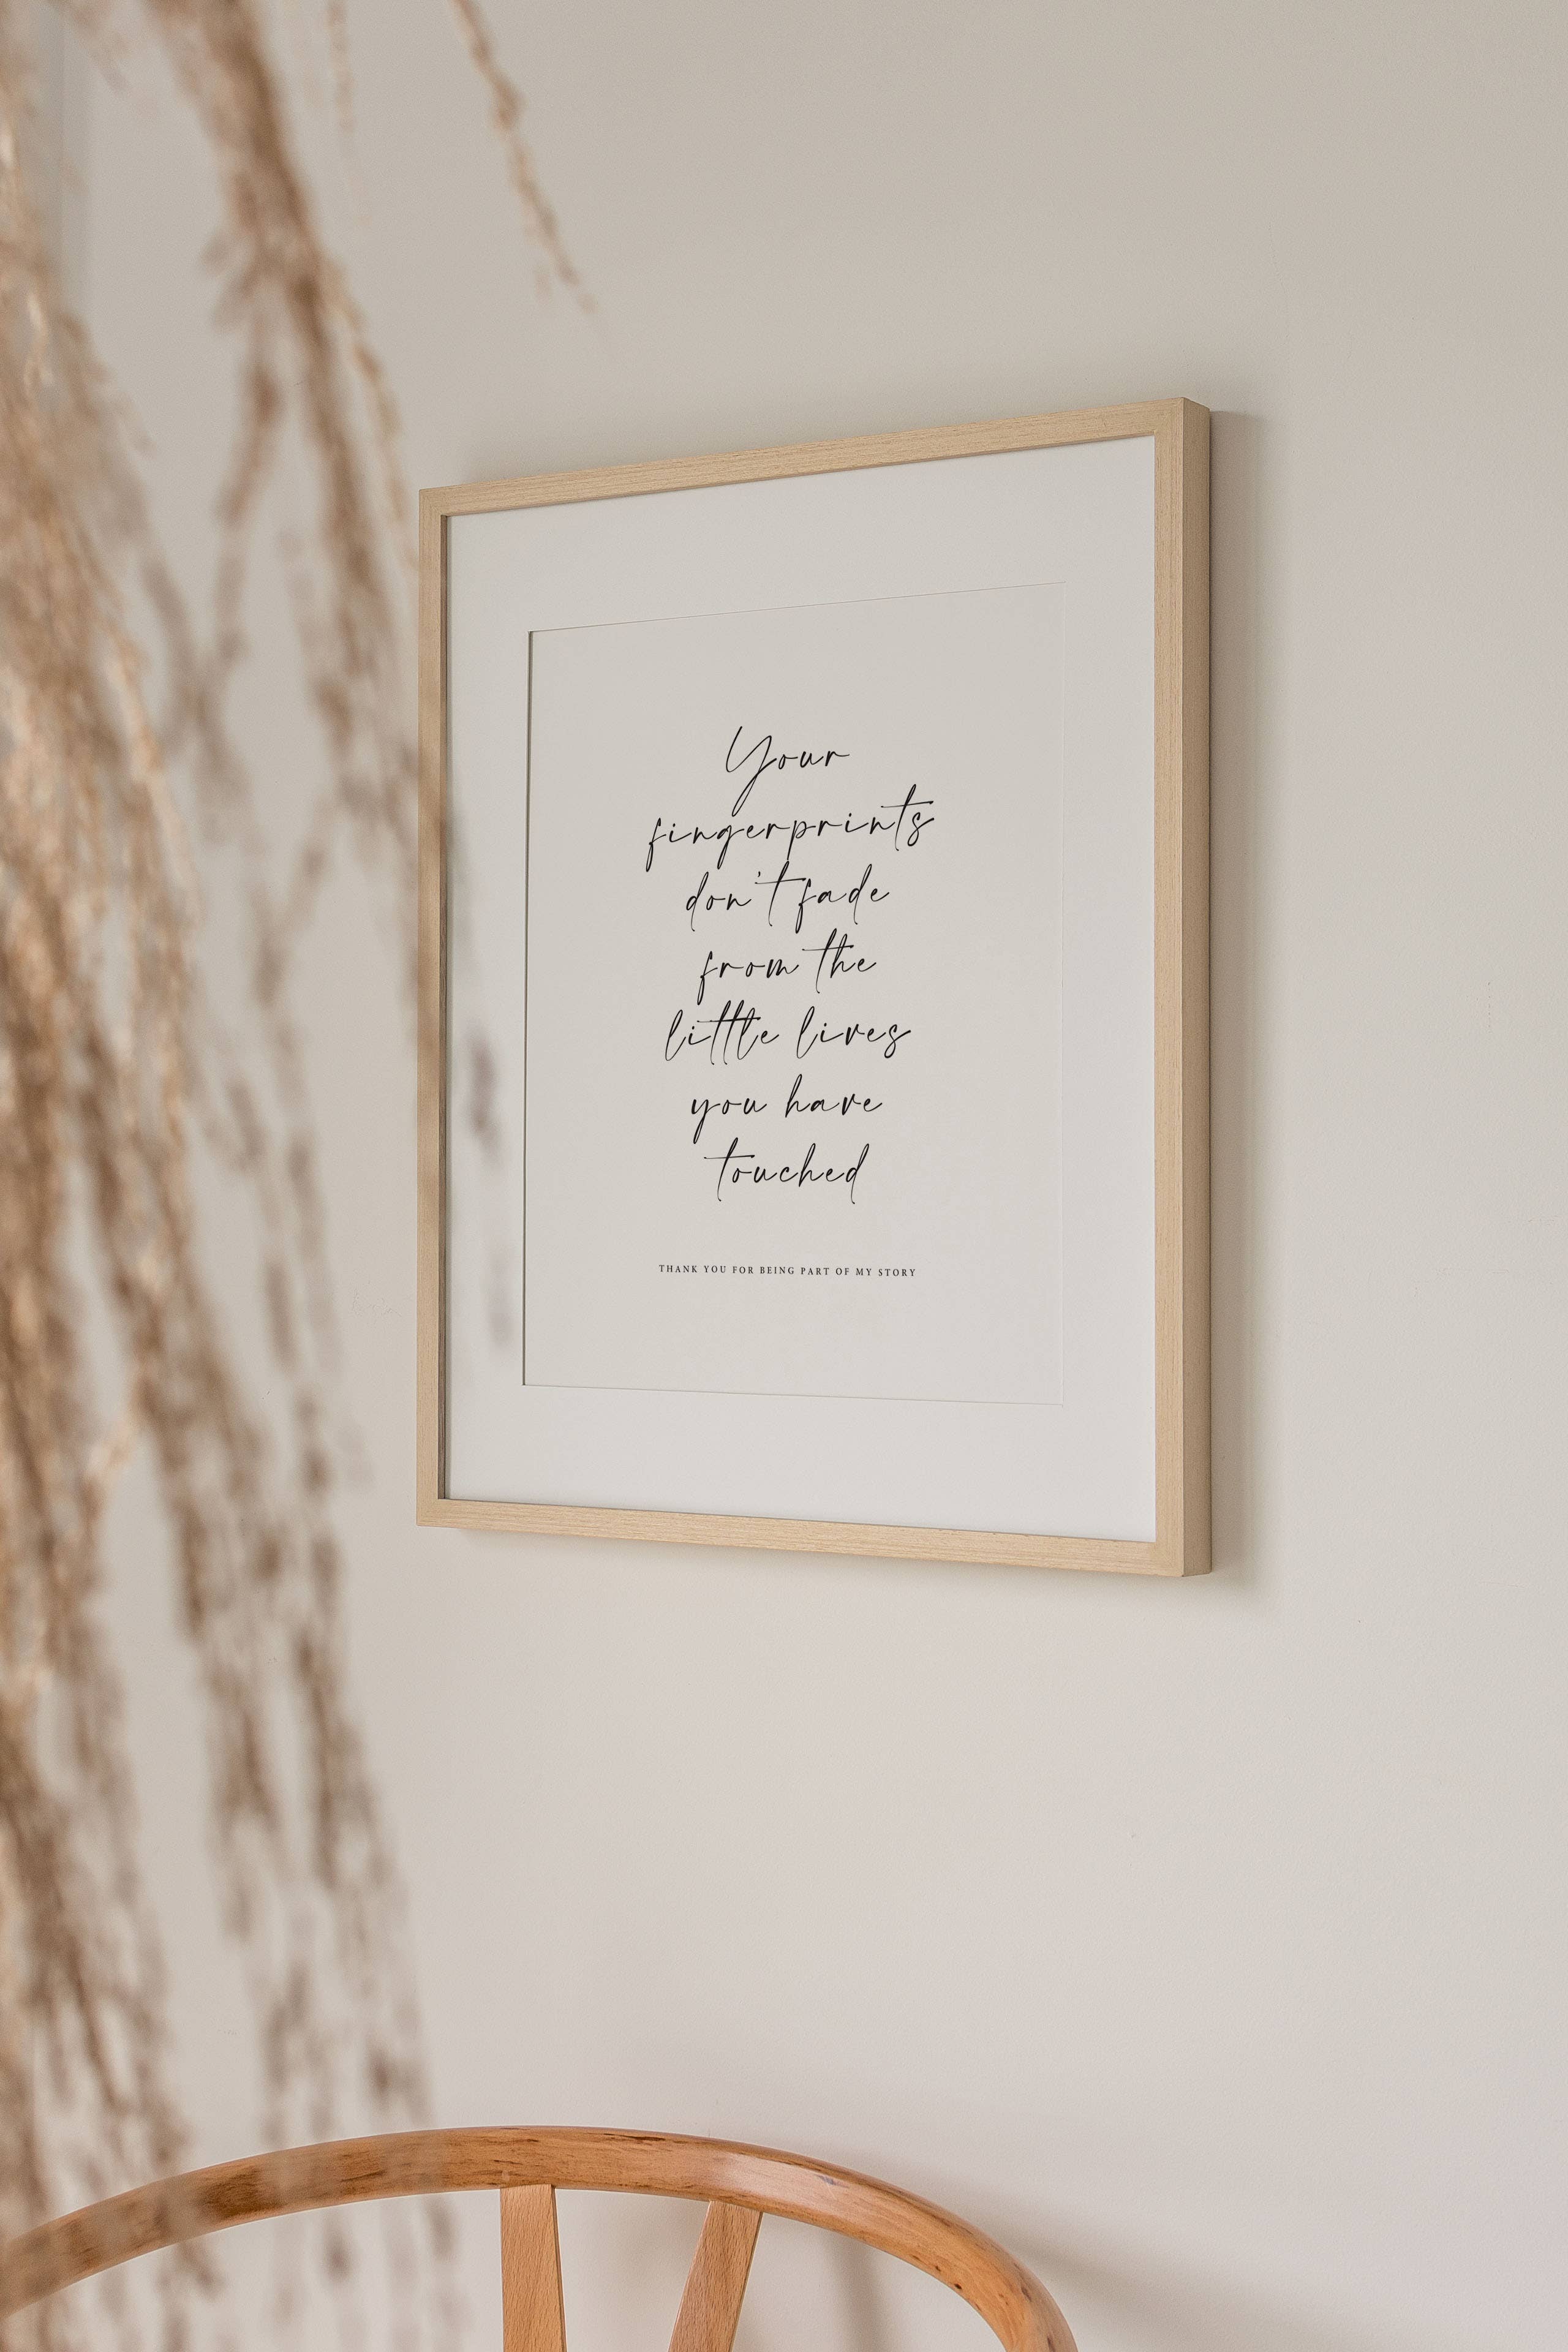 Your
fingerprints
don't fade
from the
little lives
you have
touched
THANK YOU FOR BEING PART OF MY STORY